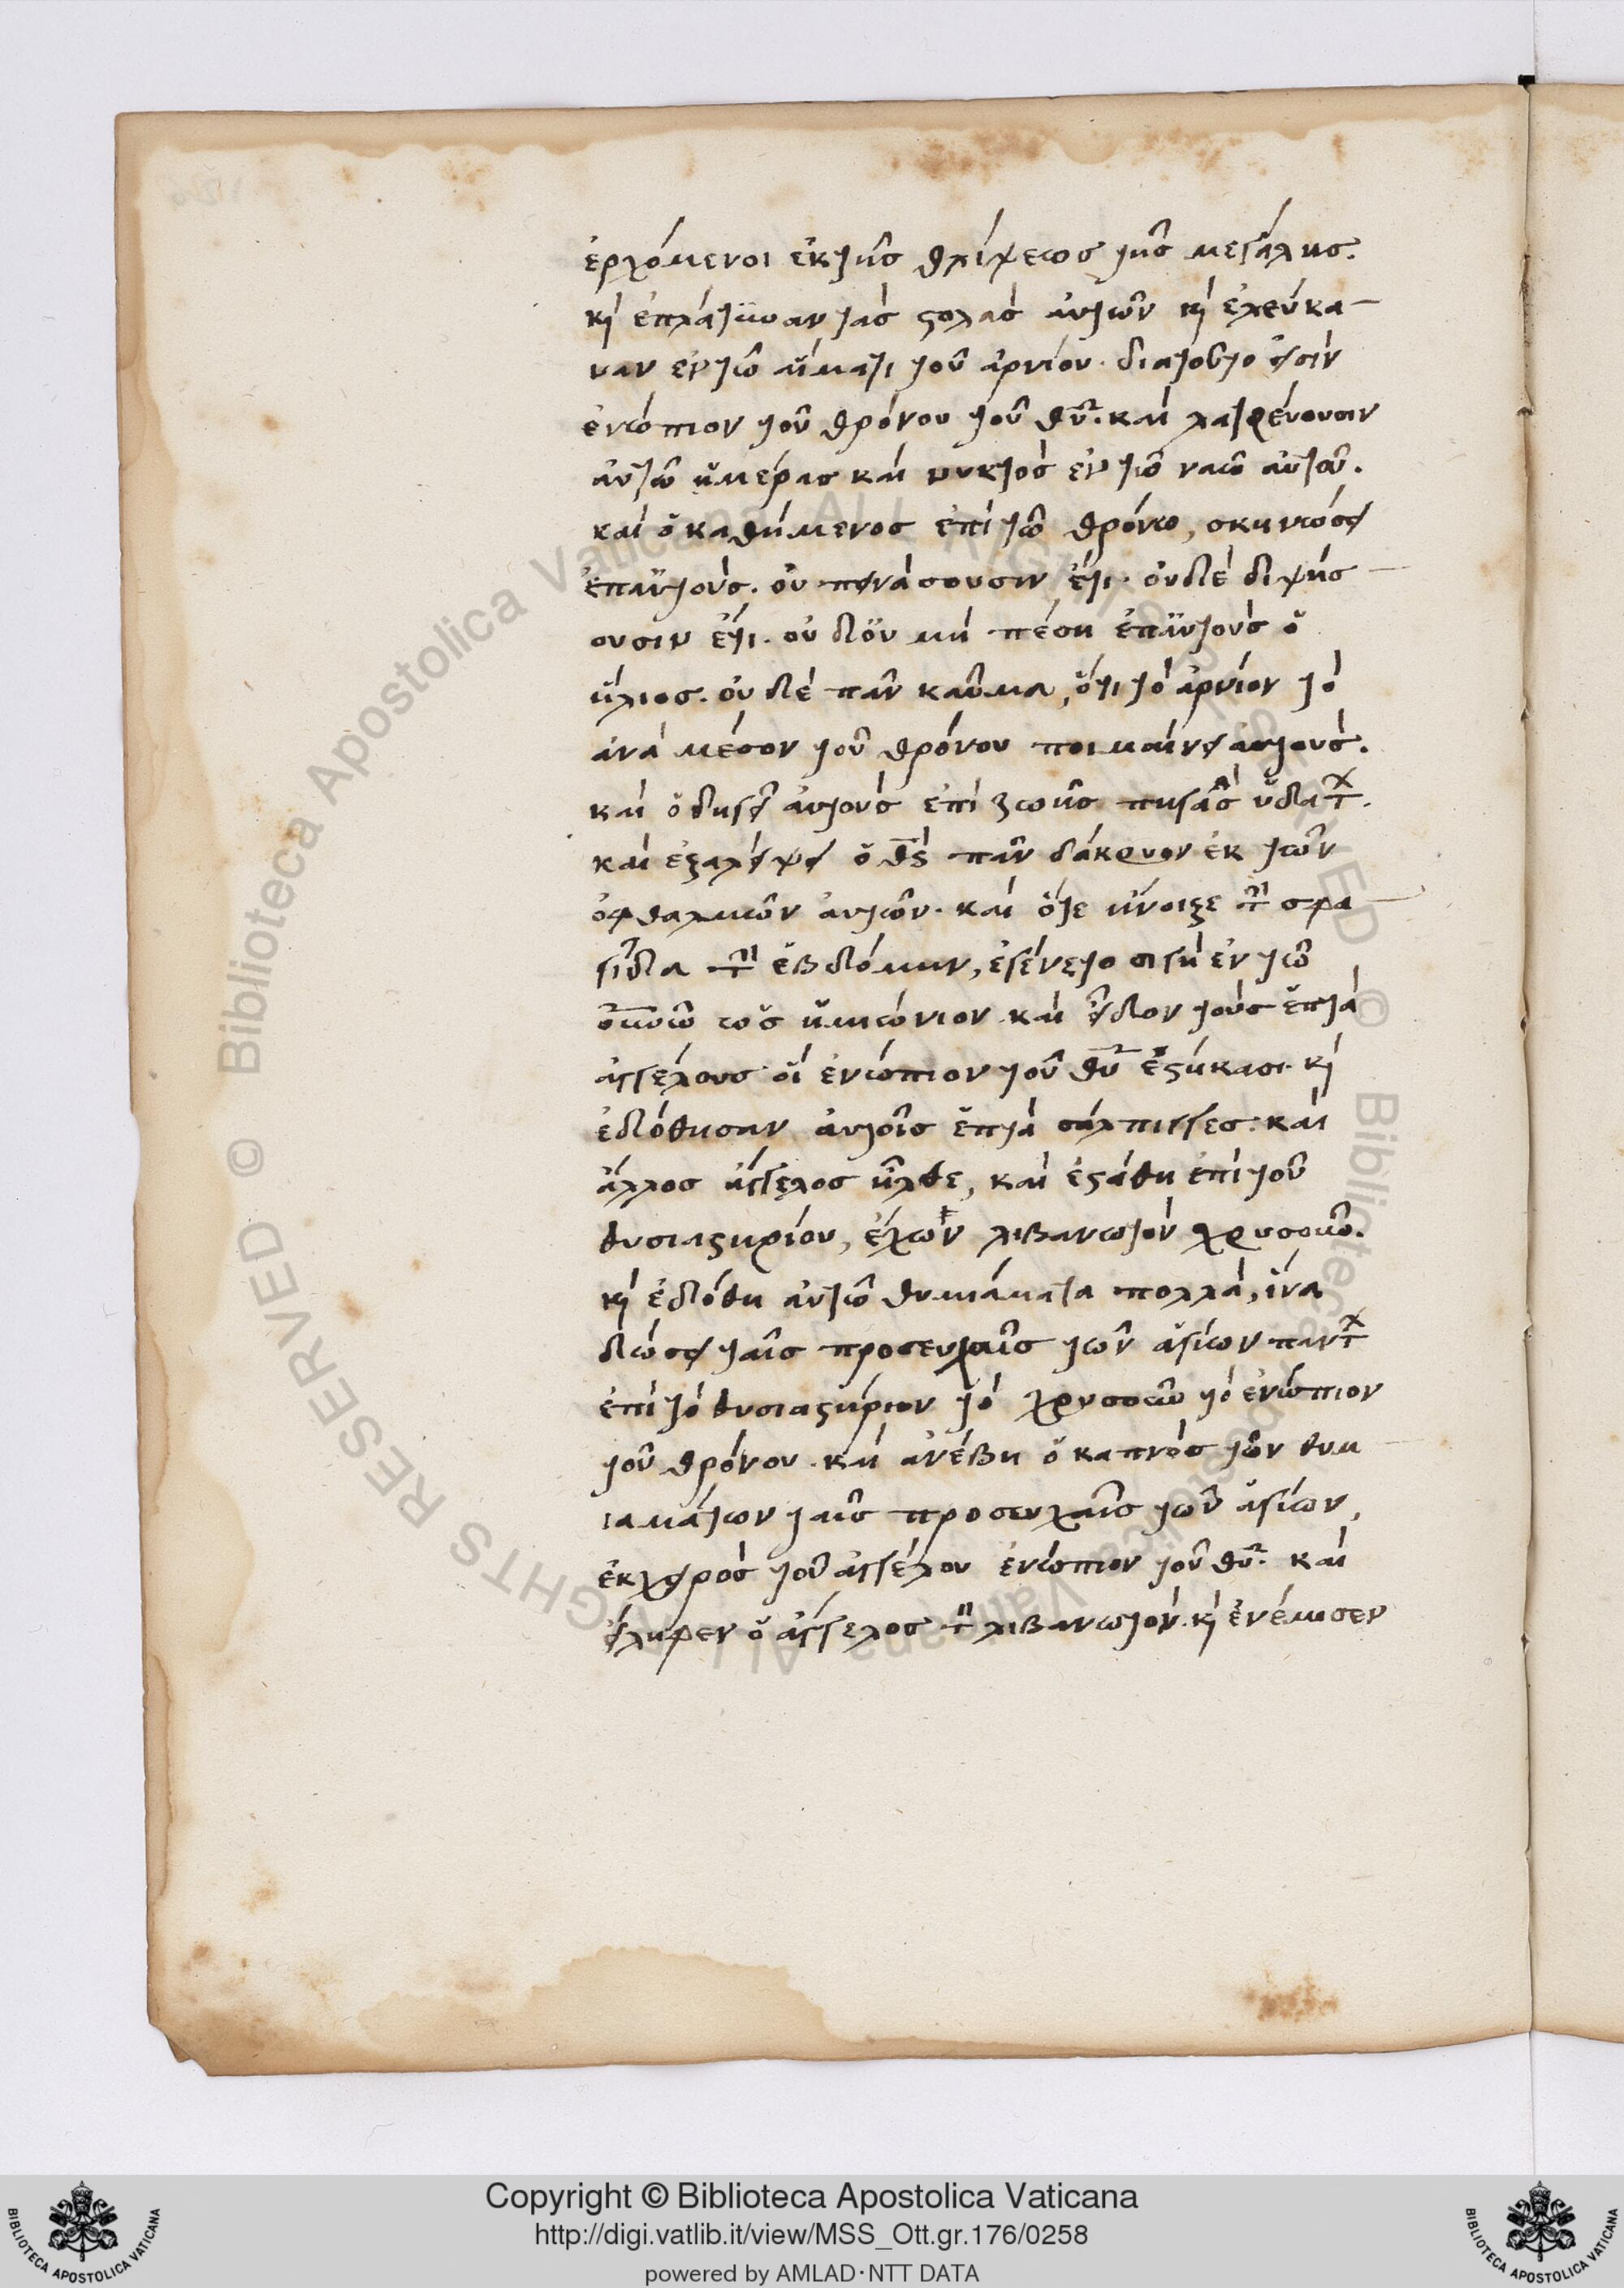 ἐρχόμενοι ἐκ τῆς θλίψεως τῆς μεγάλης.
κὶ ἐπλάτυναν τὰς στολὰς αὐτῶν κὶ ἐλεύκα-
ναν ἐν τῷ αἵματι τοῦ ἀρνίου. διατοῦτο εἰσὶν
ἐνώπιον τοῦ θρόνου τοῦ θῦ. καὶ λατρεύουσιν
αὐτῷ ἡμέρας καὶ νυκτὸς ἐν τῷ ναῷ αὐτοῦ.
καὶ ὁ καθήμενος ἐπὶ τῷ θρόνῳ, σκηνώσει
ἐπαὐτούς. οὐ πεινάσουσιν ἔτι. οὐδὲ διψήσ-
ουσιν ἔτι. οὐ δὀυ μὴ πέσῃ ἐπαὐτοὺς ὁ
ἥλιος. οὐ δὲ πᾶν καῦμα, ὅτι τὸ ἀρνίον τὸ
ἀνὰ μέσον τοῦ θρόνου ποιμαίνει αὐτούς.
καὶ ὁδηγεῖ αὐτοὺς ἐπὶ ζωῆς πηγὰς ὑδάτων.
καὶ ἐξαλείψει ὁ θς πᾶν δάκρυον ἐκ τῶν
ὀφθαλμῶν αὐτῶν. καὶ ὅτε ἤνοιξε τὴν σφρα-
γῖδα τὴν ἑβδόμην, ἐγένετο σιγὴ ἐν τῷ
οὐνῷ ὡς ἡμιώνιον καὶ εἶδον τοὺς ἑπτὰ
ἀγγέλους οἳ ἐνώπιον τοῦ θῦ ἑστήκασι. κὶ
ἐδόθησαν αὐτοῖς ἑπτὰ σάλπιγγες. καὶ
ἄλλος ἄγγελος ἦλθε, καὶ ἐστάθη ἐπὶ τοῦ
θυσιαστηρίου, ἔχων λιβανωτὸν χρυσοῦν.
κὶ ἐδόθη αὐτῷ θυμιάματα πολλὰ, ἵνα
δώσει ταῖς προσευχαῖς τῶν ἁγίων παντων
ἐπὶ τὸ θυσιαστήριον τὸ χρυσοῦν τὸ ἐνώπιον
τοῦ θρόνου. καὶ ἀνέβη ὁ καπνὸς τῶν θυμ-
ιαμάτων ταῖς προσευχαῖς τῶν ἁγίων,
ἐκ χειρὸς τοῦ ἀγγέλου ἐνώπιον τοῦ θῦ. καὶ
εἴληφεν ὁ ἄγγελος τὸν λιβανωτόν. κὶ ἐγέμισεν
Copyright © Biblioteca Apostolica Vaticana
http://digi.vatlib.it/view/MSS_Ott.gr.176/0258
powered by AMLAD·NTT DATA
BIBLIOTECA APOSTOLICA VATICANA
BIBLIOTECA APOSTOLICA VATICANA
© Biblioteca Apostolica Vaticana ALL RIGHTS RESERVED © Biblioteca Apostolica Vaticana ALL RIGHTS RESERVED